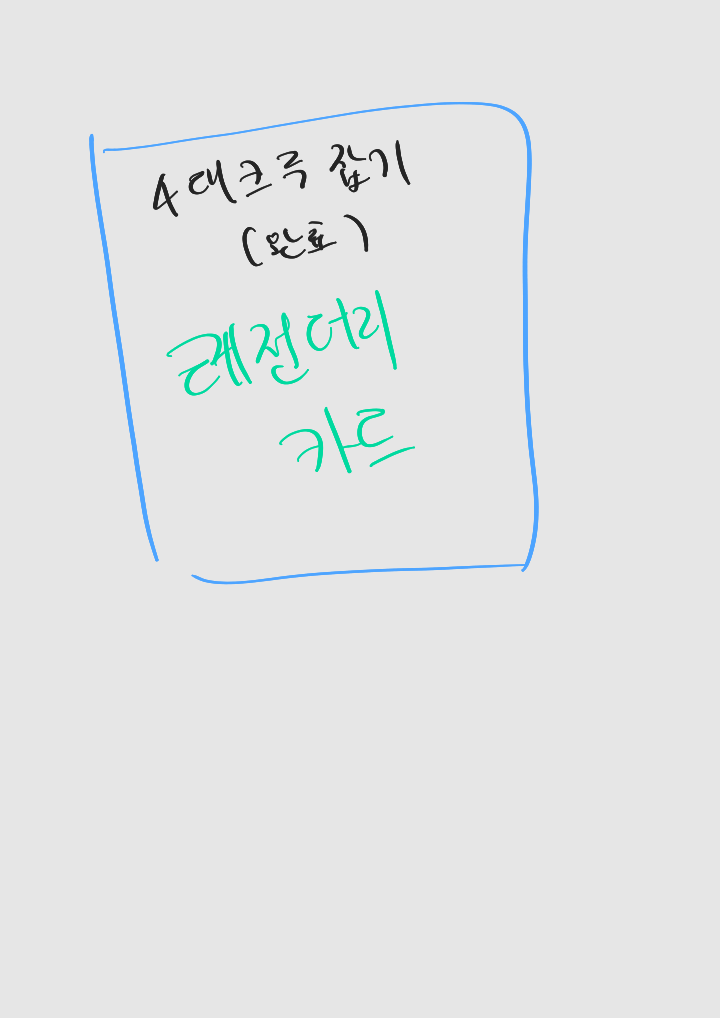 4대크루 잡기
(완료)
레전더리
카드